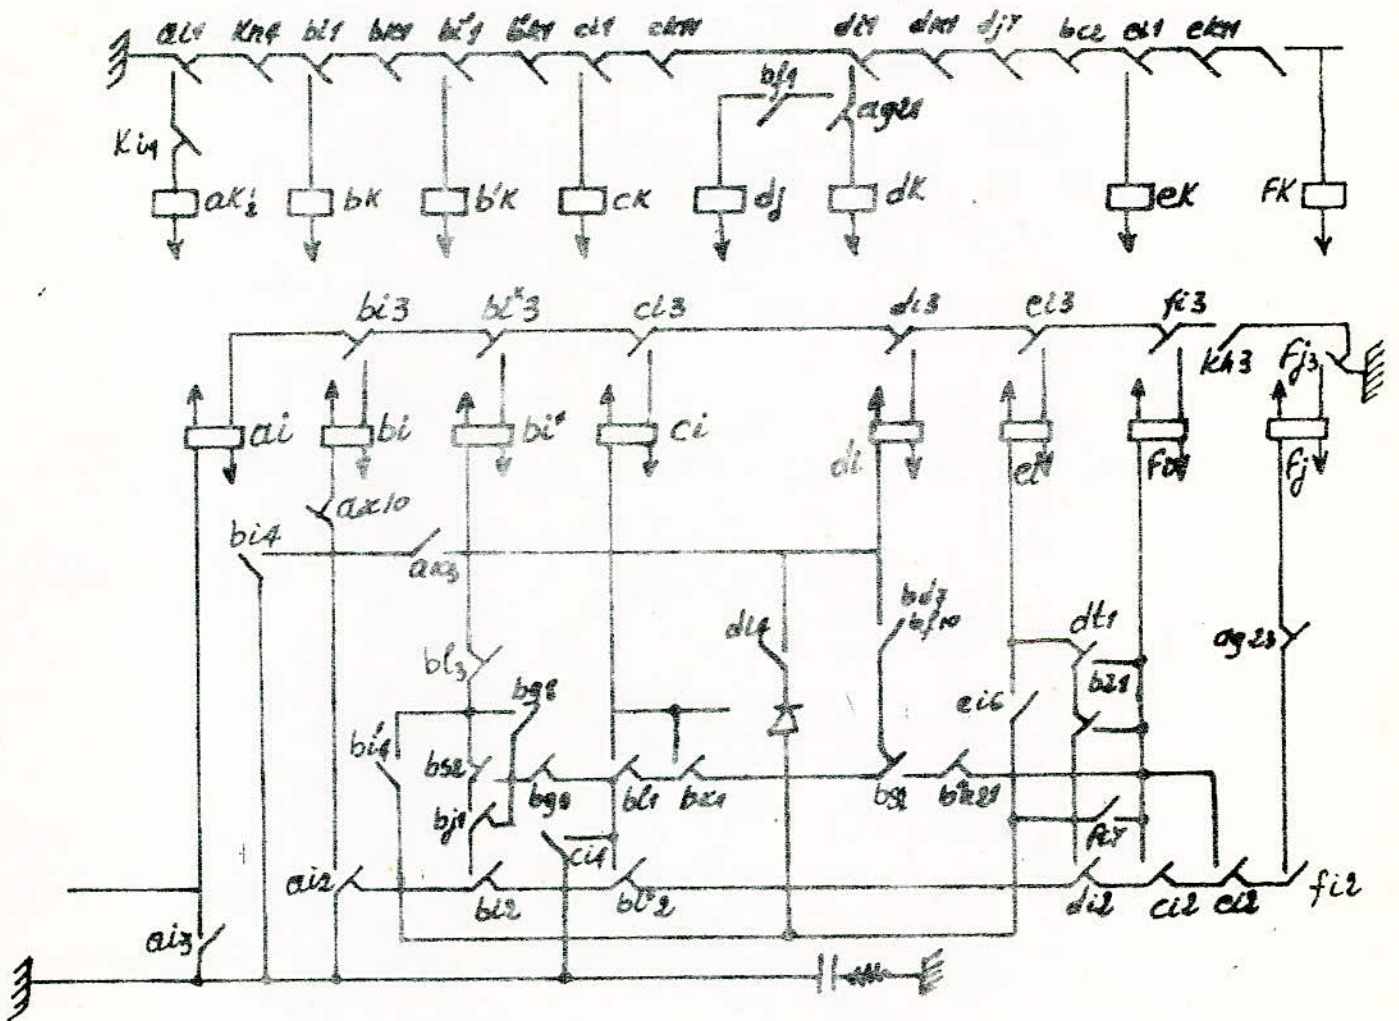 ai1 kn1 bi1 bk1 bi*1 b*k1 ci1 ck11 di1 dk1 dj7 bc2 ei1 ek11
bf1
ag21
Ki1
bk b'k ck dj dk ek FK
bi3 bi*3 ci3 di3 ei3 fi3
kh3 Fj3
ai bi bi* ci di ei Fi Fj
ax10
bi4
ax3
bd7
bf10
di4 dt1
ag23
bl3
bg2 b21
ei6
bi'4
bs2
bg1 bl1 bx1 bs2 b*k21
bj1
ci4
ai2 bi2 bi*2 di2 ci2 ei2 fi2
ai3